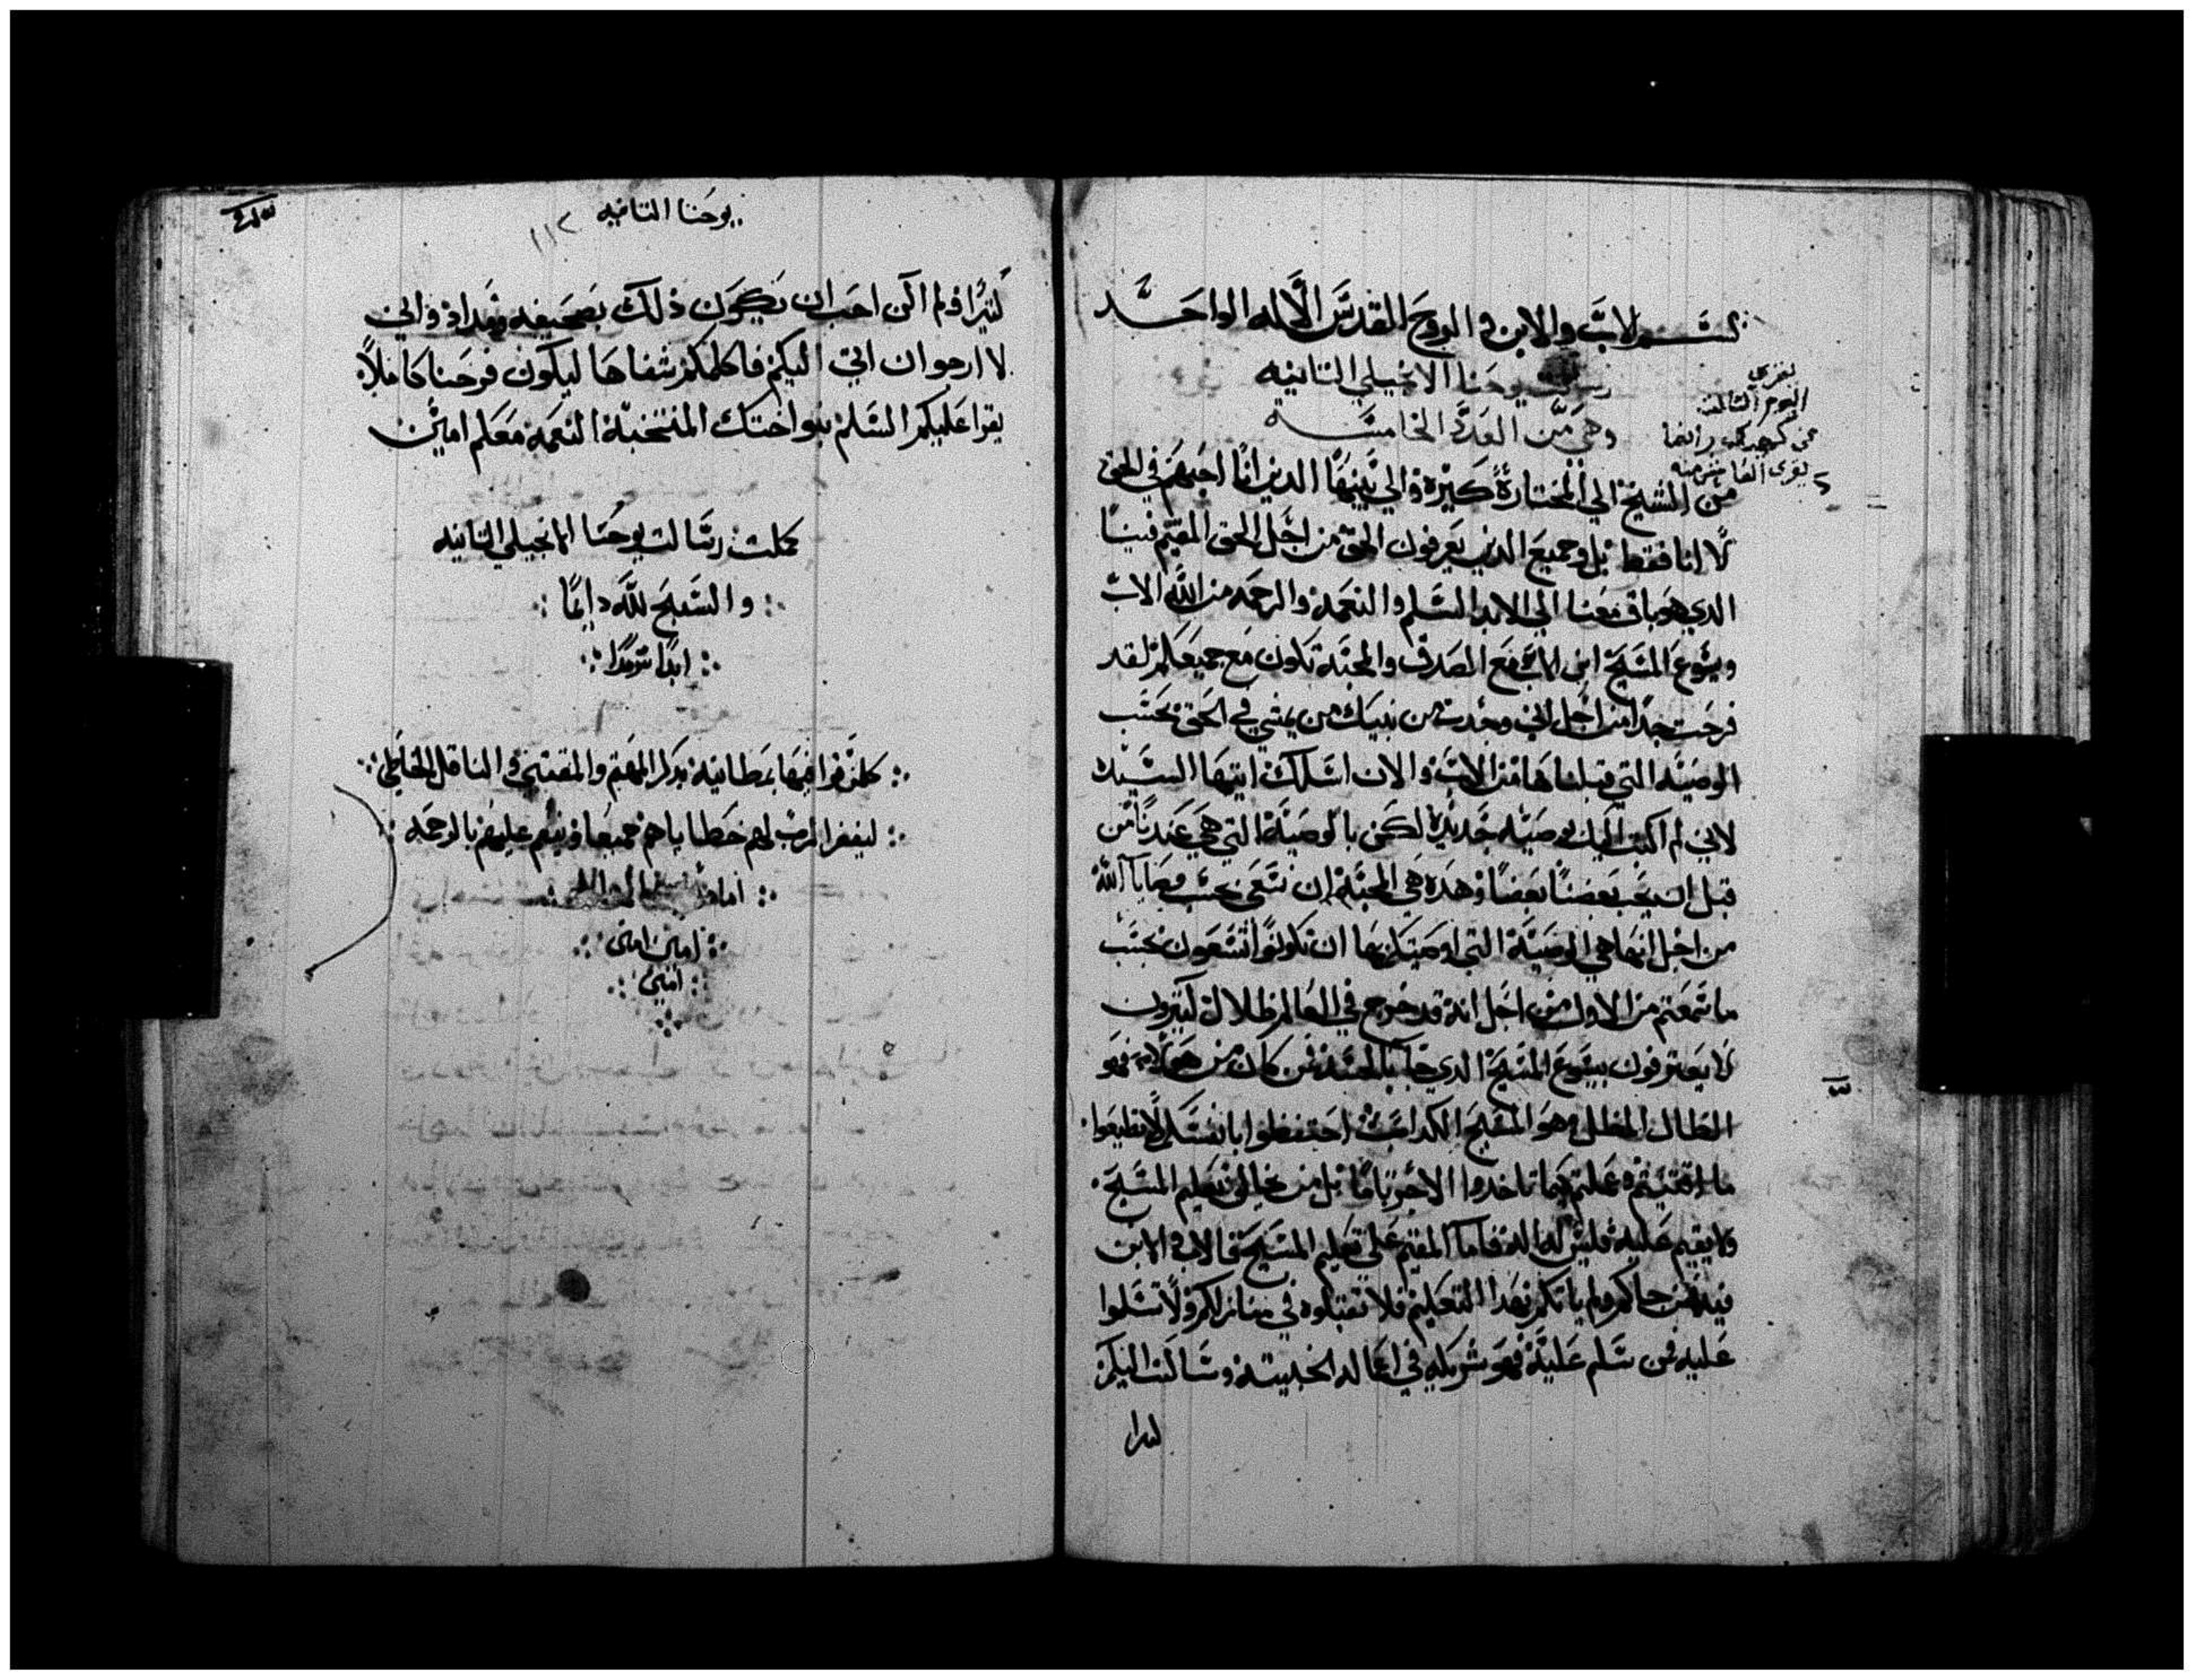 بسم الاب والابن والروح القدس الاله الواحد
رسالة يوحنا الانجيلي الثانيه
وهي من العدد الخامسه
من الشيخ الي المختارة كيرة والي بنيها الدين انا احبهم في الحق
لا انا فقط بل وجميع الدين يعرفون الحق من اجل الحق المقيم فينا
الدي هو باق معنا الي الابد السلم والنعمة والرحمه من الله الاب
ويسوع المسيح ابن الاب مع الصدق والمحبة تكون مع جميعكم لقد
فرحت جدا من اجل اني وجدت من بنيك من يمشي في الحق بحسب
الوصيه التي قبلناها من الاب والان اسلك ايتها السيده
لاني لم اكتب اليك بوصيه جديدة لكن بالوصية التي هي عندنا من
قبل ان يحب بعضنا بعضا وهده هي المحبة ان نسعي بحسب وصايا الله
من اجل انها هي الوصية التي اوصيتكم بها ان تكونوا تسعون بحسب
ما سمعتم من الاول من اجل انه قد خرج في العالم ظلال كتيرون
لا يعترفون بيسوع المسيح الدي جا بالجسد فمن كان من هولاء فهو
الظال المظل وهو المسيح الكداب احتفظوا بانفسكم لا تظيعوا
ما اقتنيتم وعملتم كيما تاخدوا الاجر تاما بل من خالف تعليم المسيح
ولا يقيم عليه فليس له اله فاما المقيم علي تعليم المسيح فالاب والابن
فيه فمن جاكم ولم ياتكم بهدا التعليم فلا تقبلوه في منازلكم ولا تسلموا
عليه فمن سلم عليه فهو شريكه في اعماله الخبيته وسالت اليكم
يوحنا التانيه
١١٢
كتيرا فلم اكن احب ان يكون دلك بصحيفه ومداد واني
لا ارجوا ان اتي اليكم فاكلمكم شفاها ليكون فرحنا كاملا
يقرا عليكم السلم بنو اختك المنتخبة النعمة معكم امين
كملت رسالت يوحنا الانجيلي التانيه
والسبح لله دايما
ابدا سرمدا
كلمن قرا فيها بمطانيه يدكر المهتم والمقتني والناقل الخاطي
ليغفر الرب لهم خطاياهم جميعا وينعم عليهم بالرحمه
امين امين
امين